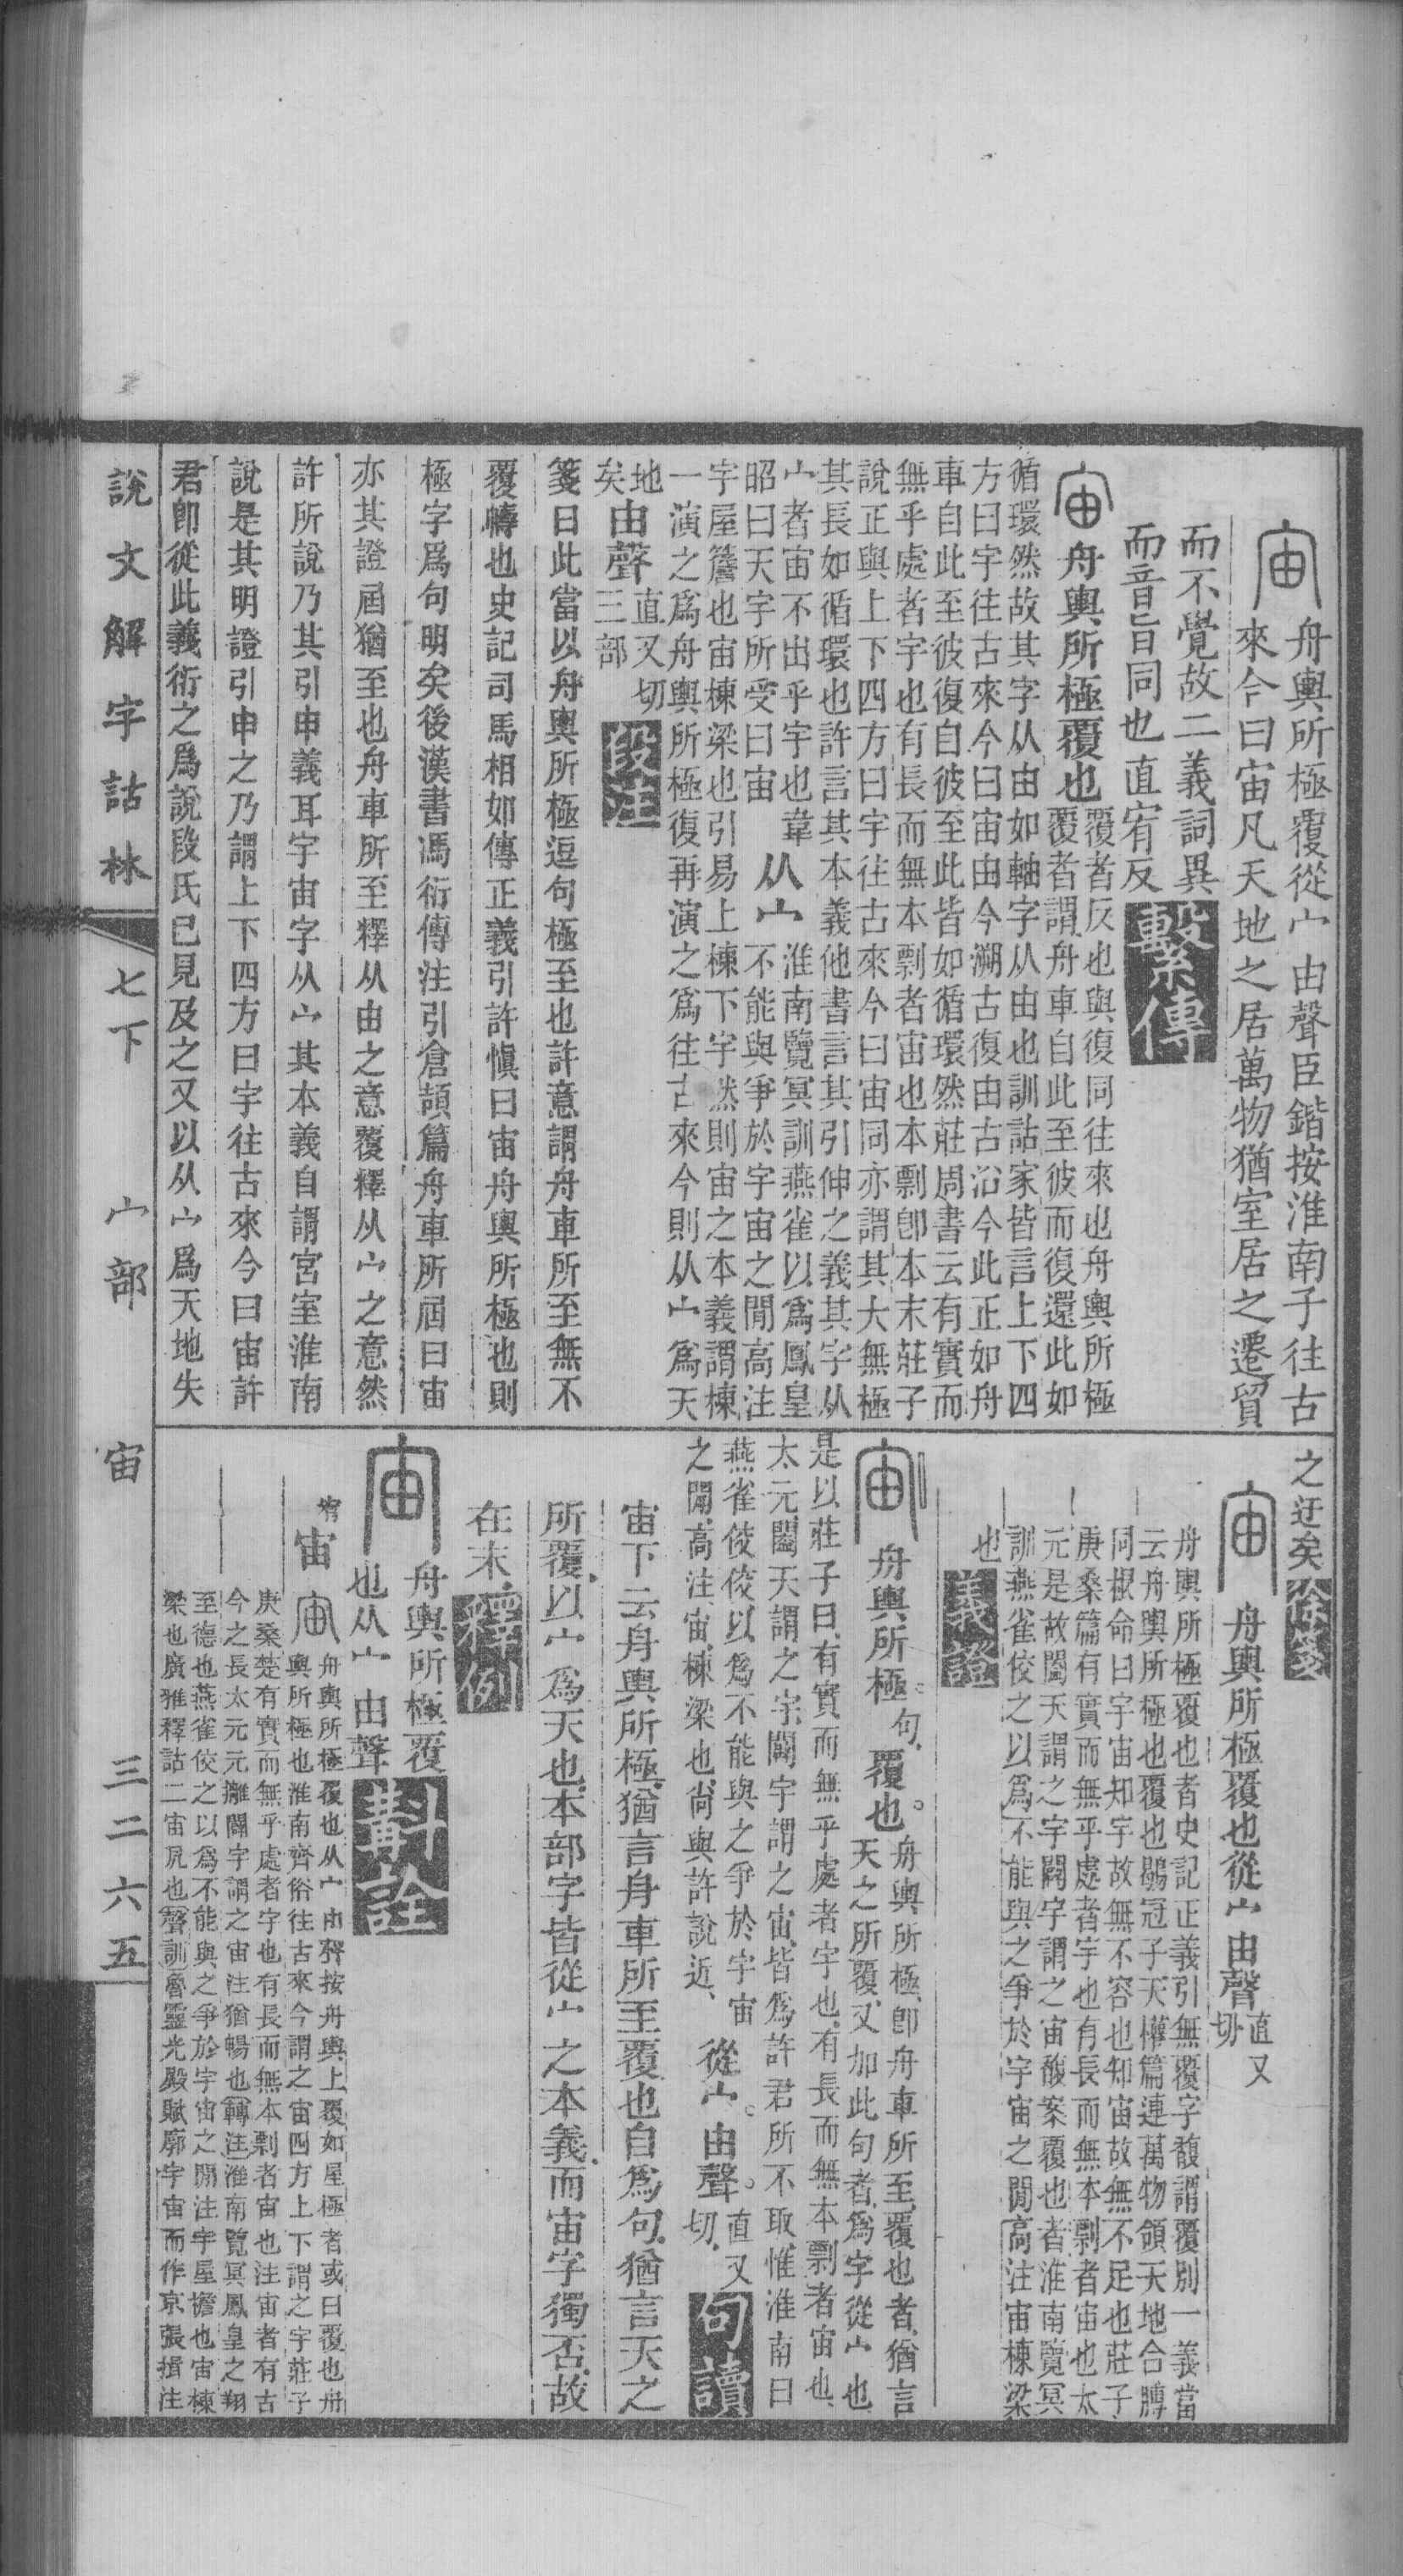 宙
舟輿所極覆從宀由聲臣鍇按淮南子往古
來今曰宙凡天地之居萬物猶室居之遷貿
而不覺故二義詞異
而音旨同也直宥反
繫傳
宙
舟輿所極覆也
覆者反也與復同往來也舟輿所極
覆者謂舟車自此至彼而復還此如
循環然故其字从由如軸字从由也訓詁家皆言上下四
方曰宇往古來今曰宙由今溯古復由古沿今此正如舟
車自此至彼復自彼至此皆如循環然莊周書云有實而
無乎處者宇也有長而無本剽者宙也本剽卽本末莊子
說正與上下四方曰宇往古來今曰宙同亦謂其大無極
其長如循環也許言其本義他書言其引伸之義其字从
宀者宙不出乎宇也韋
昭曰天宇所受曰宙
从宀
淮南覽冥訓燕雀以爲鳳皇
不能與爭於宇宙之閒高注
宇屋簷也宙棟梁也引易上棟下宇然則宙之本義謂棟
一演之爲舟輿所極復再演之爲往古來今則从宀爲天
地
矣
由聲
直又切
三部
段注
箋曰此當以舟輿所極逗句極至也許意謂舟車所至無不
覆幬也史記司馬相如傳正義引許愼曰宙舟輿所極也則
極字爲句明矣後漢書馮衍傳注引倉頡篇舟車所屆曰宙
亦其證屆猶至也舟車所至釋从由之意覆釋从宀之意然
許所說乃其引申義耳宇宙字从宀其本義自謂宮室淮南
說是其明證引申之乃謂上下四方曰宇往古來今曰宙許
君卽從此義衍之爲說段氏已見及之又以从宀爲天地失
之迂矣
徐箋
宙
舟輿所極覆也從宀由聲
直又
切
舟輿所極覆也者史記正義引無覆字馥謂覆別一義當
云舟輿所極也覆也鶡冠子天權篇連萬物領天地合膊
同根命曰宇宙知宇故無不容也知宙故無不足也莊子
庚桑篇有實而無乎處者宇也有長而無本剽者宙也太
元是故闔天謂之宇闢宇謂之宙馥案覆也者淮南覽冥
訓燕雀佼之以爲不能與之爭於宇宙之閒高注宙棟梁
也
義證
宙
舟輿所極。句覆也。
舟輿所極卽舟車所至覆也者猶言
天之所覆又加此句者爲字從宀也
是以莊子曰有實而無乎處者宇也有長而無本剽者宙也
太元闔天謂之宇闢宇謂之宙皆爲許君所不取惟淮南曰
燕雀佼佼以爲不能與之爭於宇宙
之閒高注宙棟梁也尙與許說近
從宀。由聲。
直又
切
句讀
宙下云舟輿所極猶言舟車所至覆也自爲句猶言天之
所覆以宀爲天也本部字皆從宀之本義而宙字獨否故
在末
釋例
宙
舟輿所極覆
也从宀由聲
斠詮
宙
舟輿所極覆也从宀由聲按舟輿上覆如屋極者或曰覆也舟
輿所極也淮南齊俗往古來今謂之宙四方上下謂之宇莊子
庚桑楚有實而無乎處者宇也有長而無本剽者宙也注宙者有古
今之長太元元攡闢宇謂之宙注猶暢也轉注淮南覽冥鳳皇之翔
至德也燕雀佼之以爲不能與之爭於宇宙之閒注宇屋檐也宙棟
梁也廣雅釋詁二宙凥也聲訓魯靈光殿賦廓宇宙而作京張揖注
說文解字詁林
七下
宀部
宙
三二六五